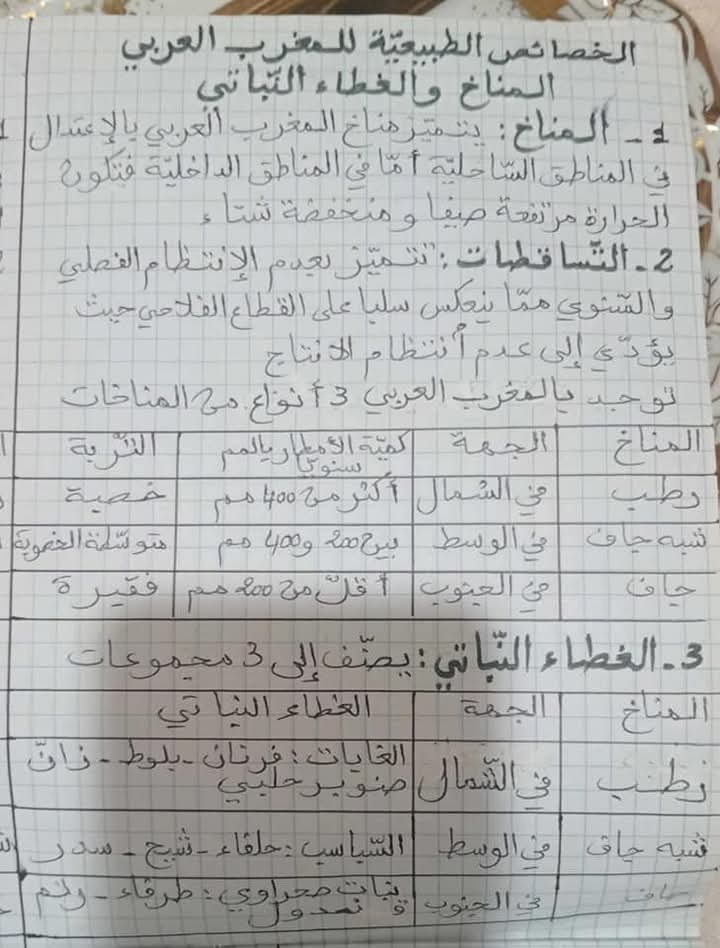 الخصائص الطبيعيّة للمغرب العربي
المناخ والغطاء النّباتي
1- المناخ: يتميّز مناخ المغرب العربي بالإعتدال
في المناطق السّاحليّة أمّا في المناطق الداخليّة فتكون
الحرارة مرتفعة صيفا و منخفضة شتاء
2- التّساقطات: تتميّز بعدم الإنتظام الفصلي
والسّنوي ممّا ينعكس سلبا على القطاع الفلاحي حيث
يؤدّي إلى عدم أنتظام الانتاج
توجد بالمغرب العربي 3 أنواع من المناخات
المناخ الجهة كميّة الأمطار بالمم سنويّا التّربة
رطب في الشمال أكثر من 400 مم خصبة
شبه جاف في الوسط بين 200 و 400 مم متوسّطة الخصوبة
جاف في الجنوب أقلّ من 200 مم فقيرة
3- الغطاء النّباتي: يصنّف إلى 3 مجموعات
المناخ الجهة الغطاء النباتي
رطب في الشّمال الغابات: فرنان - بلوط - زانّ
صنوبر حلبي
شبه جاف في الوسط السّباسب: حلفاء - شيح - سدر
جاف في الجنوب نبات صحراوي: طرفاء - رتم